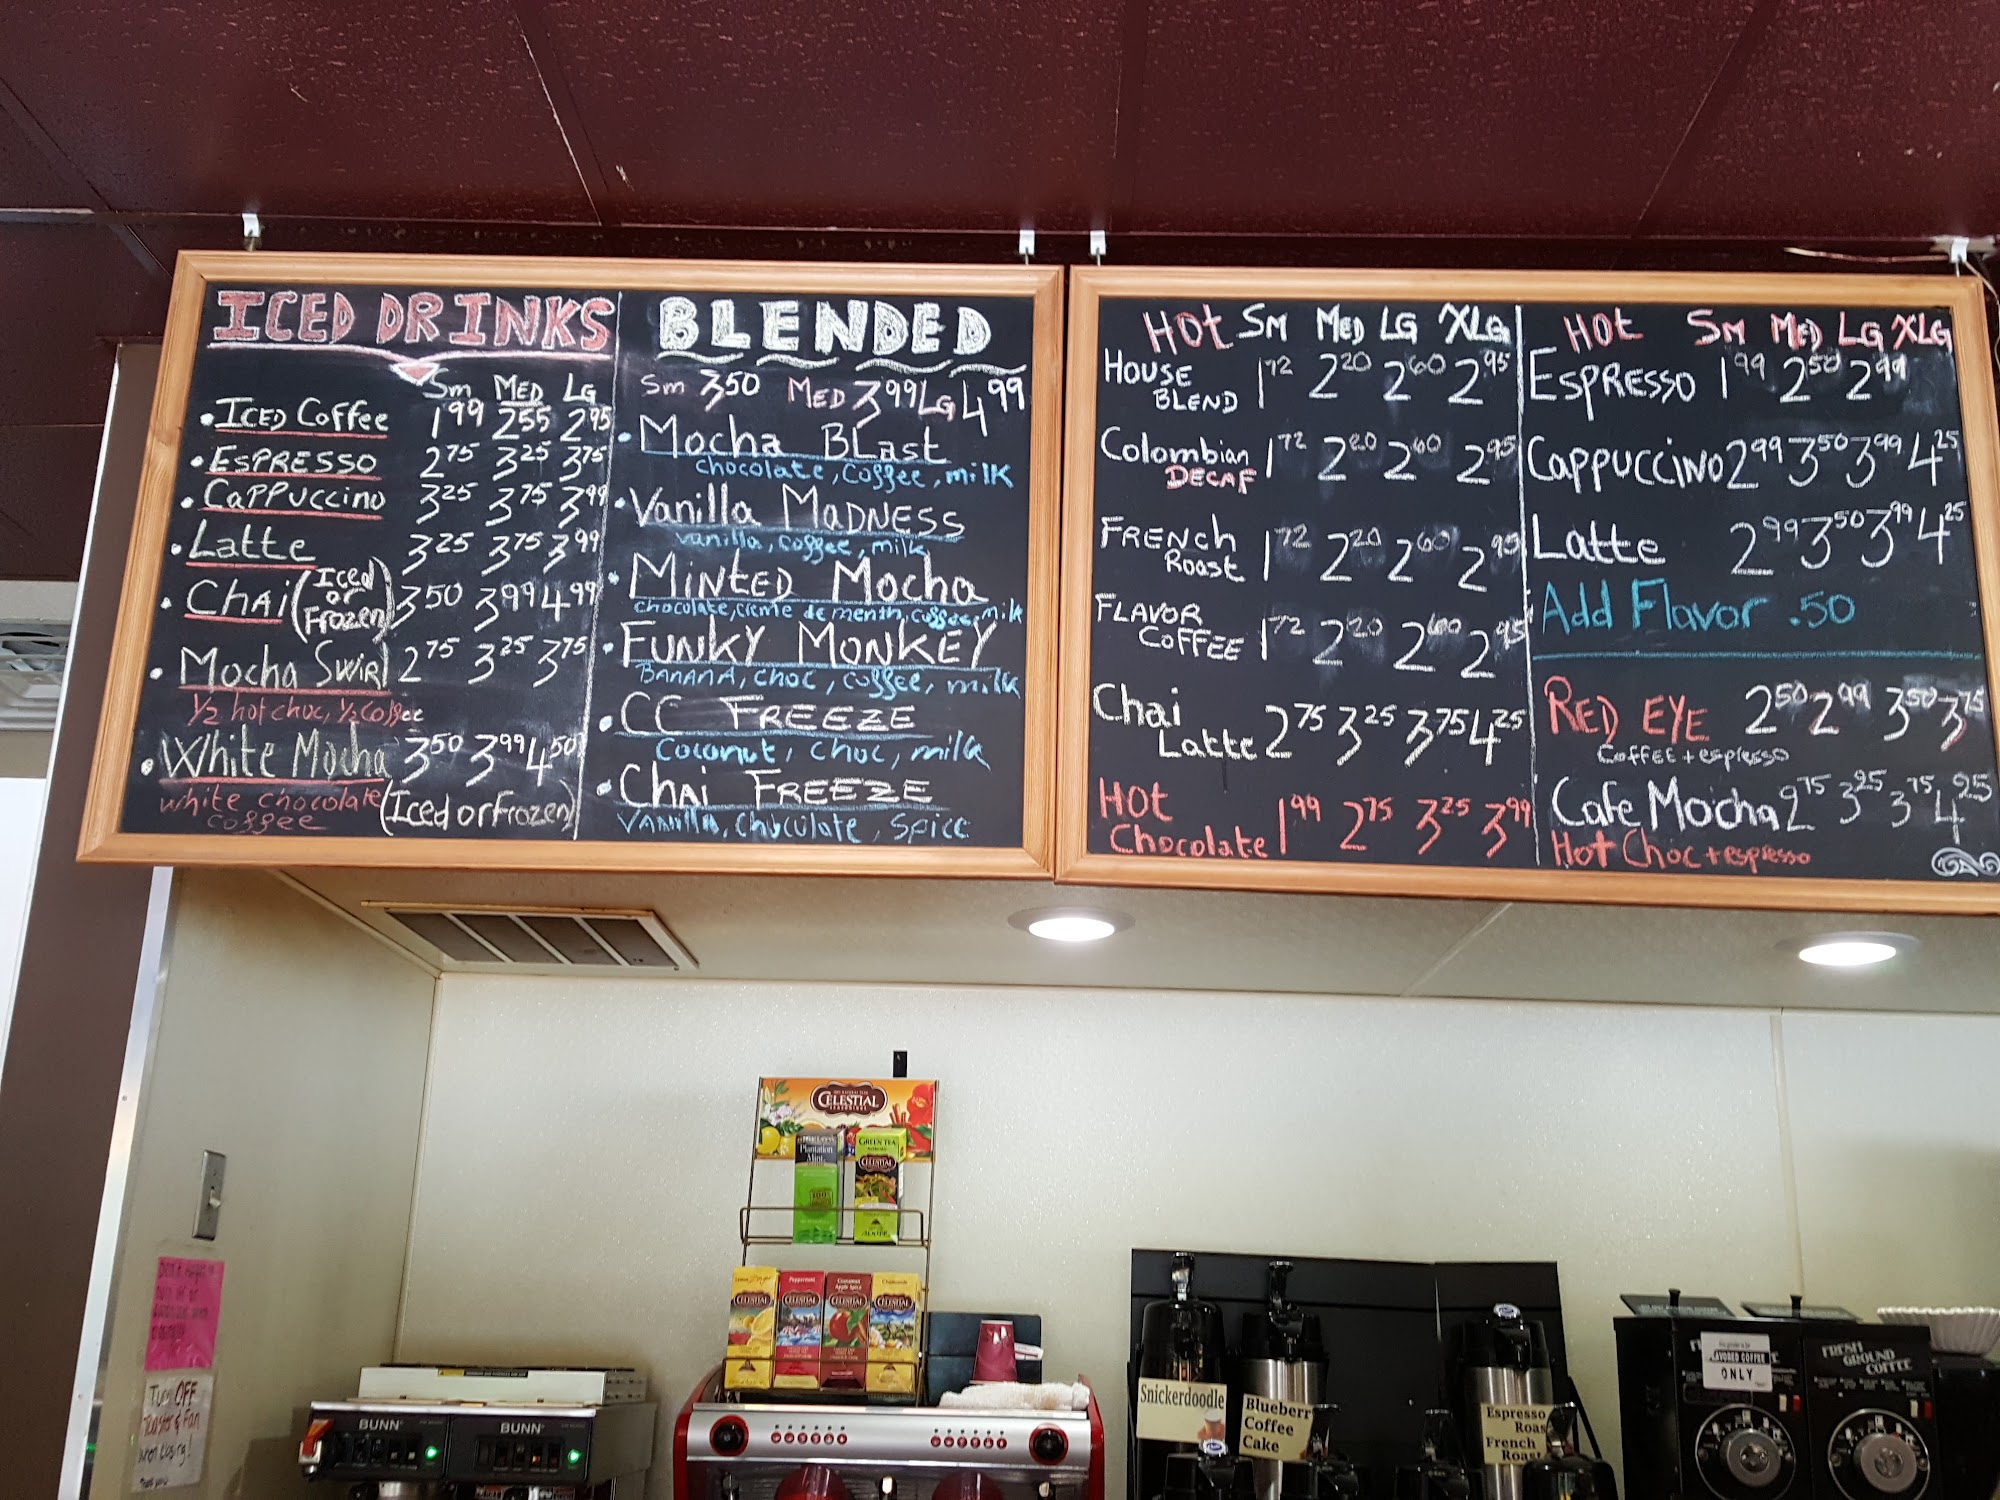 ICED DRINKS
Sm MED LG
• ICED Coffee 1.99 2.55 2.95
• ESPRESSO 2.75 3.25 3.75
• CAPPUCCINO 3.25 3.75 3.99
• Latte 3.25 3.75 3.99
• CHAI (Iced or Frozen) 3.50 3.99 4.99
• Mocha Swirl 2.75 3.25 3.75
1/2 hot choc, 1/2 Coffee
• White Mocha 3.50 3.99 4.50
white chocolate (Iced or Frozen)
coffee
BLENDED
Sm 3.50 MED 3.99 LG 4.99
• Mocha BLast
chocolate, Coffee, milk
• Vanilla MADNESS
vanilla, coffee, milk
• MINTED Mocha
chocolate, creme de menth, coffee, milk
• FUNKY MONKEY
BANANA, choc, coffee, milk
• CC FREEZE
Coconut, choc, milk
• Chai FREEZE
VANILLA, Chocolate, Spice
HOt Sm MED LG XLG
HOUSE BLEND 1.72 2.20 2.60 2.95
Colombian DECAF 1.72 2.20 2.60 2.95
FRENCH Roast 1.72 2.20 2.60 2.95
FLAVOR COFFEE 1.72 2.20 2.60 2.95
Chai Latte 2.75 3.25 3.75 4.25
HOt Chocolate 1.99 2.75 3.25 3.99
HOt Sm MED LG XLG
ESPRESSO 1.99 2.50 2.99
CAPPUCCINO 2.99 3.50 3.99 4.25
Latte 2.99 3.50 3.99 4.25
Add Flavor .50
RED EYE 2.50 2.99 3.50 3.75
Coffee + espresso
Cafe Mocha 2.75 3.25 3.75 4.25
Hot Choc + espresso
CELESTIAL
Plantation
Mint
GREEN TEA
CELESTIAL
Lemon Zinger
Peppermint
Cinnamon
Apple Spice
Chamomile
CELESTIAL
CELESTIAL
CELESTIAL
CELESTIAL
Turn OFF
Toaster & Fan
BUNN
BUNN
Snickerdoodle
Blueberr
Coffee
Cake
Espresso
Roas
French
Roast
COFFEE
ONLY
FRESH
GROUND
COFFEE